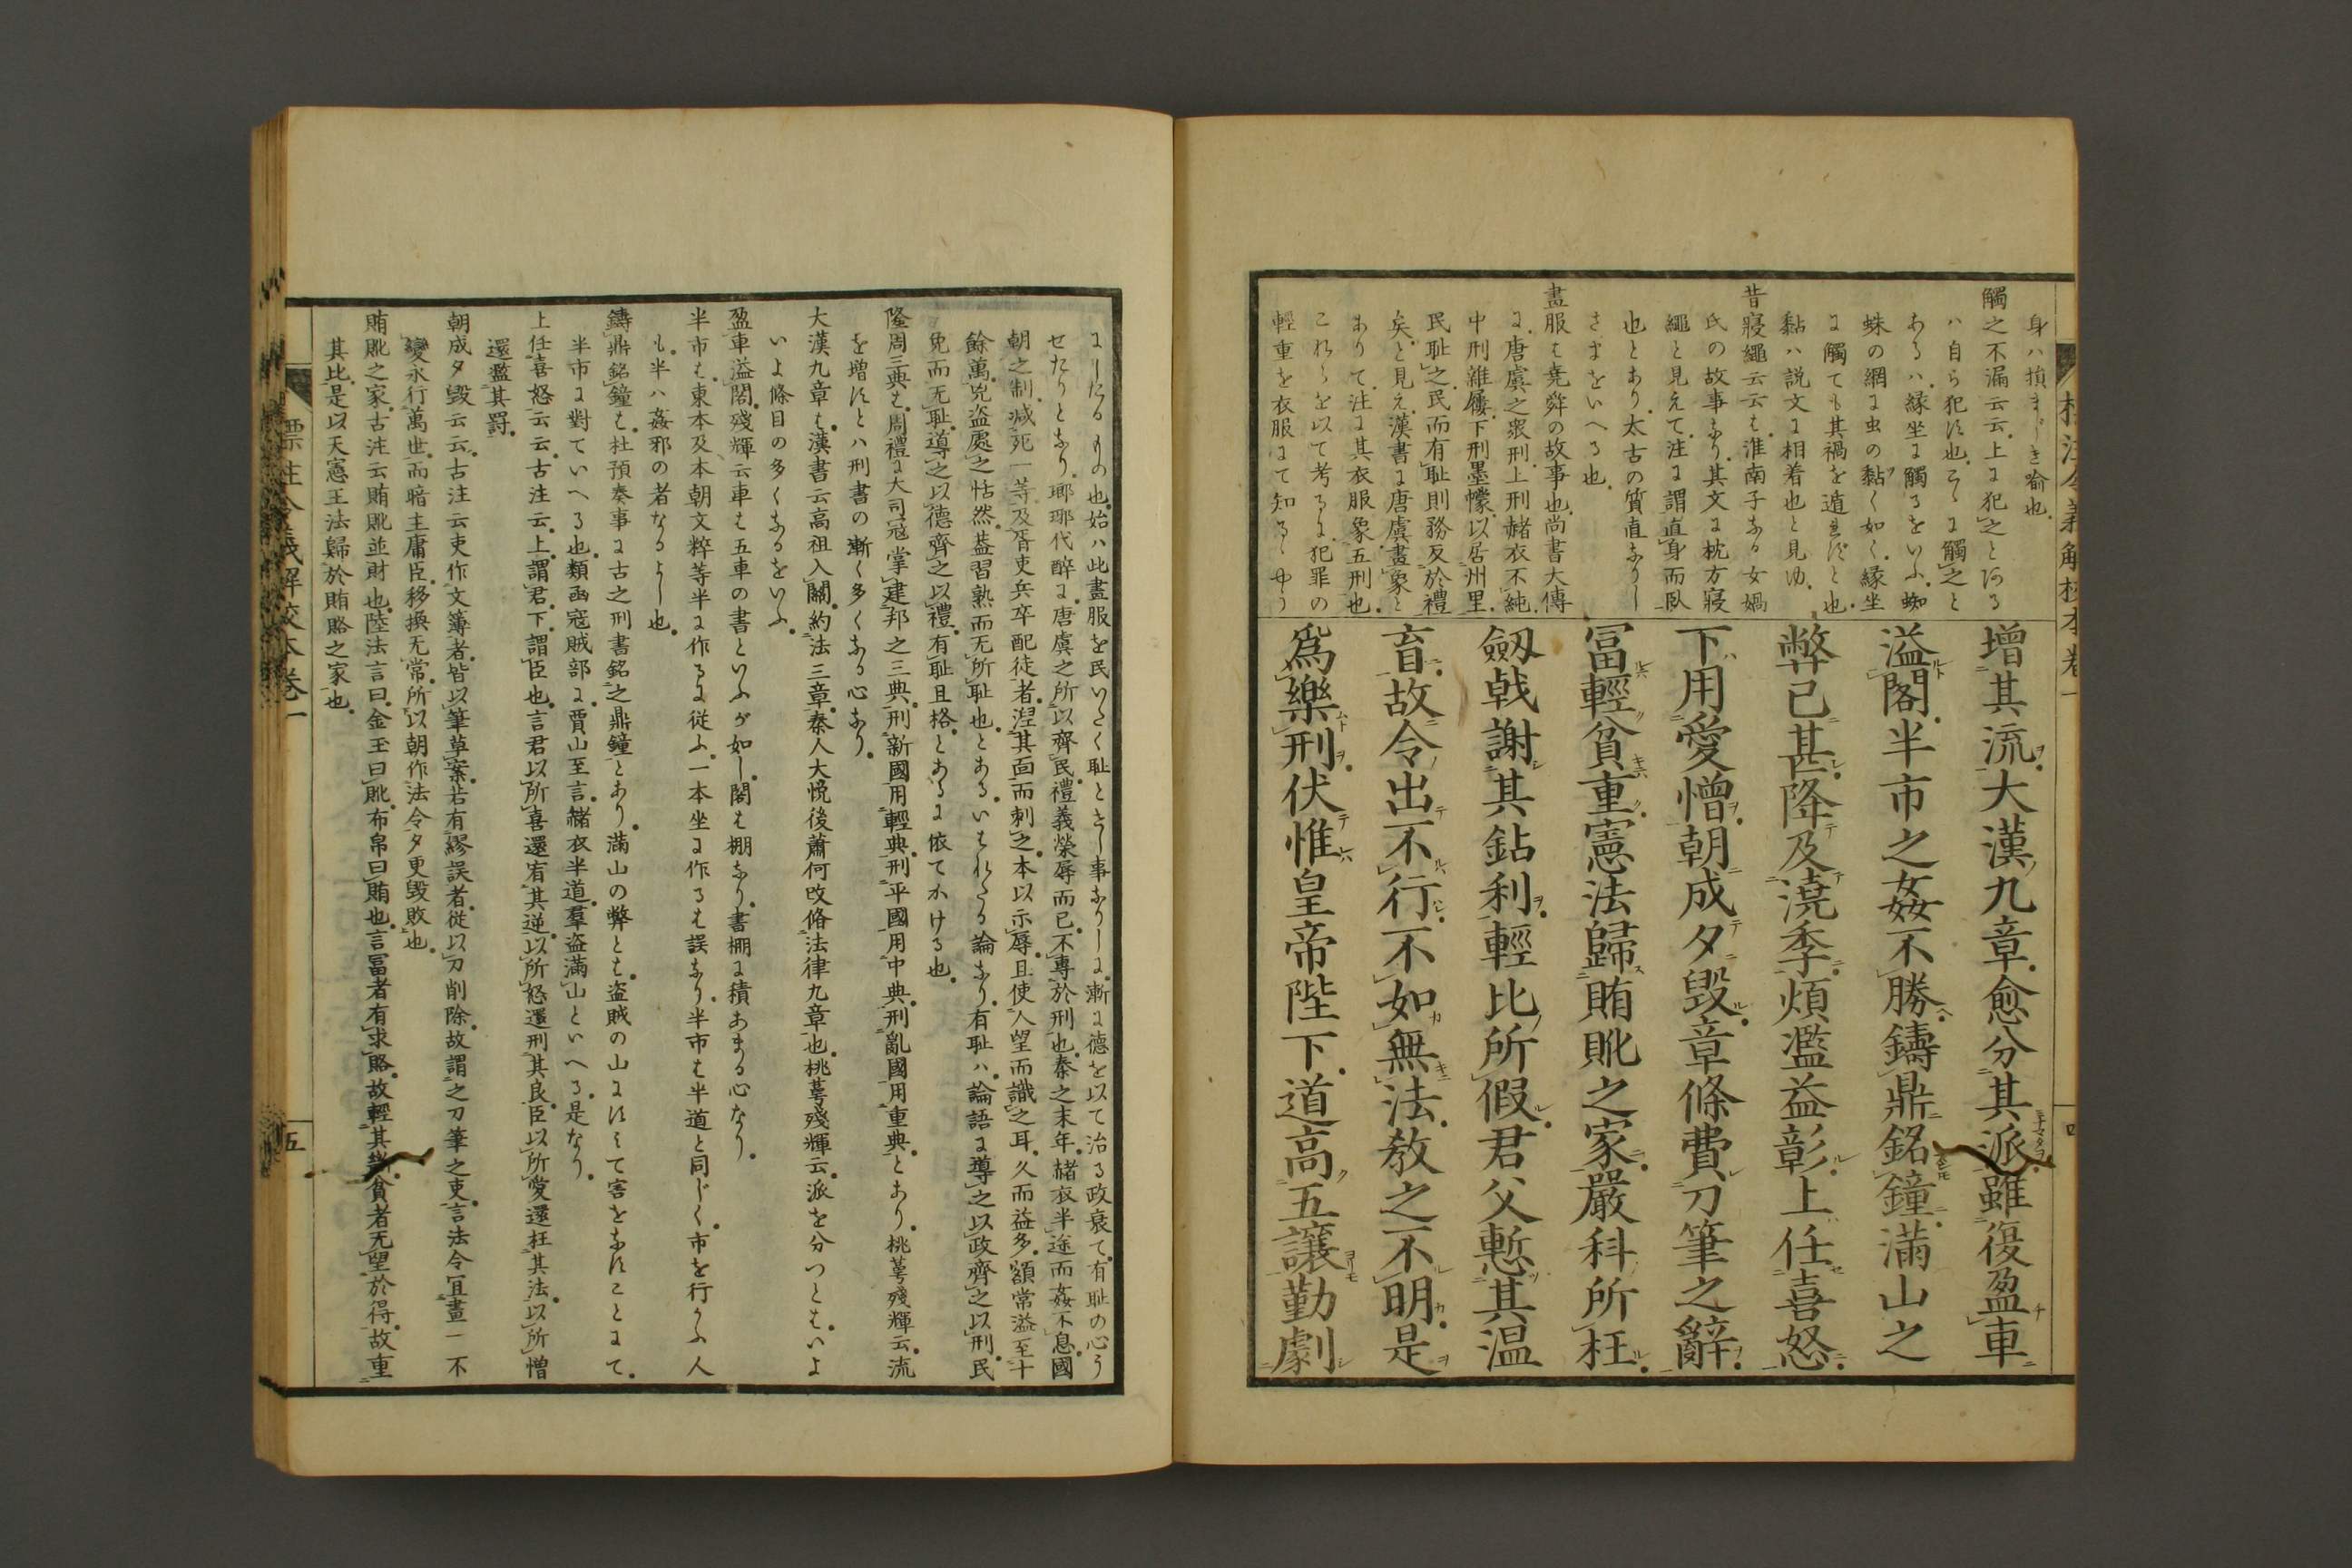 標注令義解校本卷一
身ハ損ましき喩也。
觸之不漏云云。上に犯之とある
ハ自ら犯す也。こゝに觸之と
あるハ。縁坐に觸るをいふ。蜘
蛛の網に虫の黏く如く。縁坐
に觸ても其禍を遁れずと也。
黏ハ説文に相着也と見ゆ。
昔寢繩云云も。淮南子なる女媧
氏の故事なり。其文に枕方寢
繩と見えて。注に謂直身而臥
也とあり。太古の質直なりし
さまをいへる也。
畫服も堯舜の故事也。尚書大傳
に。唐虞之象刑。上刑赭衣不純。
中刑雜屨。下刑墨幪。以居州里。
民耻之。民而有耻則務反於禮
矣。ど見え。漢書に唐虞畫象と
ありて。注に其衣服象五刑也。
これらを以て考るに。犯罪の
輕重を衣服にて知るゝやう
增其流。大漢九章。愈分其派。雖復盈車
溢閣。半市之姦不勝。鑄鼎銘鐘。滿山之
弊已甚。降及澆季。煩濫益彰。上任喜怒。
下用愛憎。朝成夕毀。章條費刀筆之辭。
冨輕貧重。憲法歸賄貤之家。嚴科所枉。
劔戟謝其鈷利。輕比所假。君父慙其温
育。故令出不行。不如無法。教之不明。是
爲樂刑。伏惟皇帝陛下。道高五讓。勤劇
にしたるもの也。始ハ此畫服を民いたく耻とせし事なりしに。漸に德を以て治る政衰て。有耻の心う
せたりとなり。瑯琊代醉に。唐虞之所以齊民。禮義榮辱而已。不專於刑也。秦之末年。赭衣半途而姦不息。國
朝之制。减死一等。及胥吏兵卒配徒者。湼其面而刺之。本以示辱。且使人望而識之耳。久而益多。額常溢至十
餘萬。兇盗處之怙然。葢習熟而无所耻也。とある。いはれたる論なり。有耻ハ。論語に導之以政齊之以刑。民
免而无耻。導之以德齊之以禮。有耻且格。とあるに依てかける也。
隆周三典も。周禮に大司冦掌建邦之三典。刑新國用輕典。刑平國用中典。刑亂國用重典。とあり。桃蕚殘輝云。流
を增すとハ刑書の漸く多くなる心なり。
大漢九章も。漢書云高祖入關。約法三章。秦人大悅後蕭何改脩法律九章也。桃蕚殘輝云。派を分つとも。いよ
いよ條目の多くなるをいふ。
盈車溢閣。殘輝云車も五車の書といふが如し。閣も棚なり。書棚に積あまる心なり。
半市も。東本及本朝文粹等半に作るに從ふ。一本坐に作るも誤なり。半市も半道と同じく。市を行かふ人
も。半ハ姦邪の者なるよし也。
鑄鼎銘鐘も。杜預奏事に古之刑書銘之鼎鐘とあり。滿山の弊とも。盗賊の山にすみて害をなすことにて。
半市に對ていへる也。類函寇賊部に。賈山至言。赭衣半道。羣盗滿山といへる。是なり。
上任喜怒云云。古注云。上。謂君。下。謂臣也。言君以所喜還宥其逆。以所怒還刑其良。臣以所愛還枉其法。以所憎
還濫其罸。
朝成夕毀云云。古注云吏作文簿者。皆以筆草案。若有繆誤者。從以刀削除。故謂之刀筆之吏。言法令冝畫一不
變永行萬世。而暗主庸臣。移換无常。所以朝作法令夕更毀敗也。
賄貤之家。古注云賄貤並財也。陸法言曰。金玉曰貤。布帛曰賄也。言冨者有求賂。故輕其弊。貧者无望於得。故重
其比。是以天憲王法歸於賄賂之家也。
標注令義解校本卷一
五